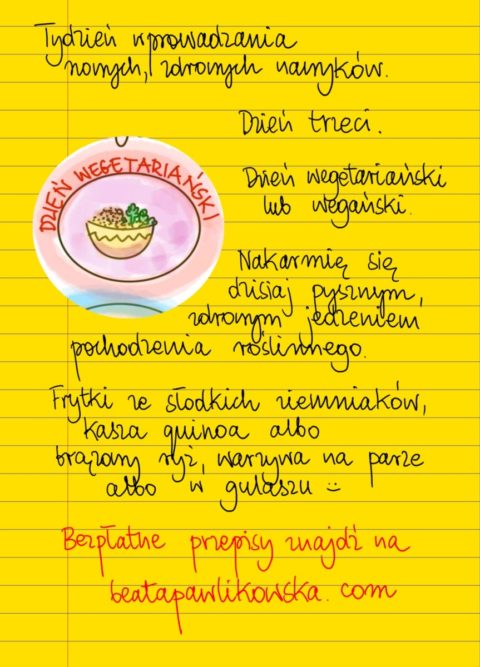 Tydzień wprowadzania
nowych, zdrowych nawyków.
Dzień trzeci.
DZIEŃ WEGETARIAŃSKI
Dzień wegetariański
lub wegański.
Nakarmię się
dzisiaj pysznym,
zdrowym jedzeniem
pochodzenia roślinnego.
Frytki ze słodkich ziemniaków,
kasza quinoa albo
brązowy ryż, warzywa na parze
albo w gulaszu :)
Bezpłatne przepisy znajdź na
beatapawlikowska.com